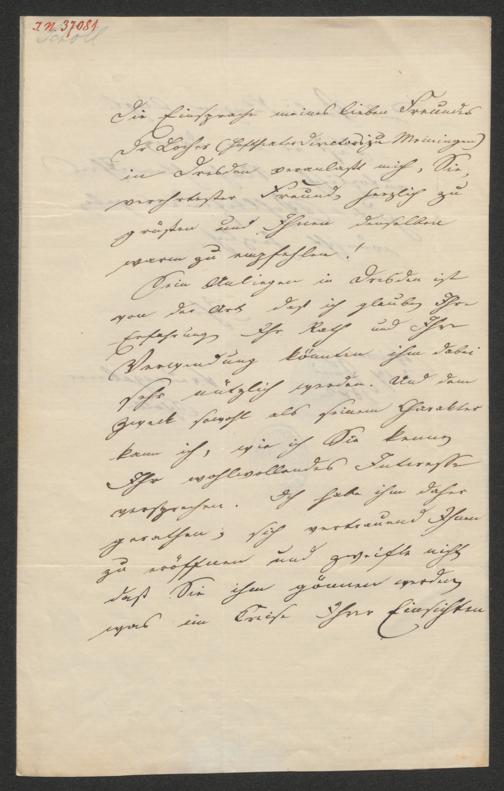 I.N. 37081
Schöll
Die Einsprache meines lieben Freundes
Dr Locher (Hoftheaterdirectors zu Meiningen)
in Dresden veranlaßt mich, Sie,
verehrtester Freund, herzlich zu
grüßen und Ihnen denselben
warm zu empfehlen!
Sein Anliegen in Dresden ist
von der Art, daß ich glaube, Ihre
Erfahrung, Ihr Rath und Ihre
Verwendung könnten ihm dabei
sehr nützlich werden. Und dem
Zweck sowohl als seinem Charakter
kann ich, wie ich Sie kenne,
Ihr wohlwollendes Interesse
versprechen. Ich habe ihm daher
gerathen, sich vertrauend Ihnen
zu eröffnen und zweifle nicht,
daß Sie ihm gönnen werden,
was im Kreise Ihrer Einsichten